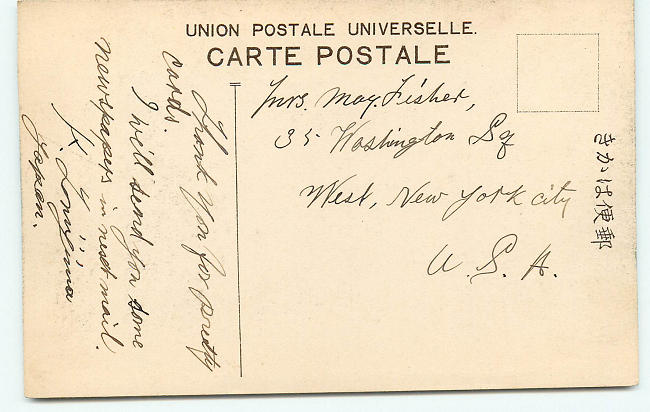 UNION POSTALE UNIVERSELLE.
CARTE POSTALE
Thank you for pretty
cards.
I will send you some
newspapers in next mail.
Japan.
Mrs. May. Fisher,
35 Washington Sq
West, New York city
U. S. A.
きかは便郵